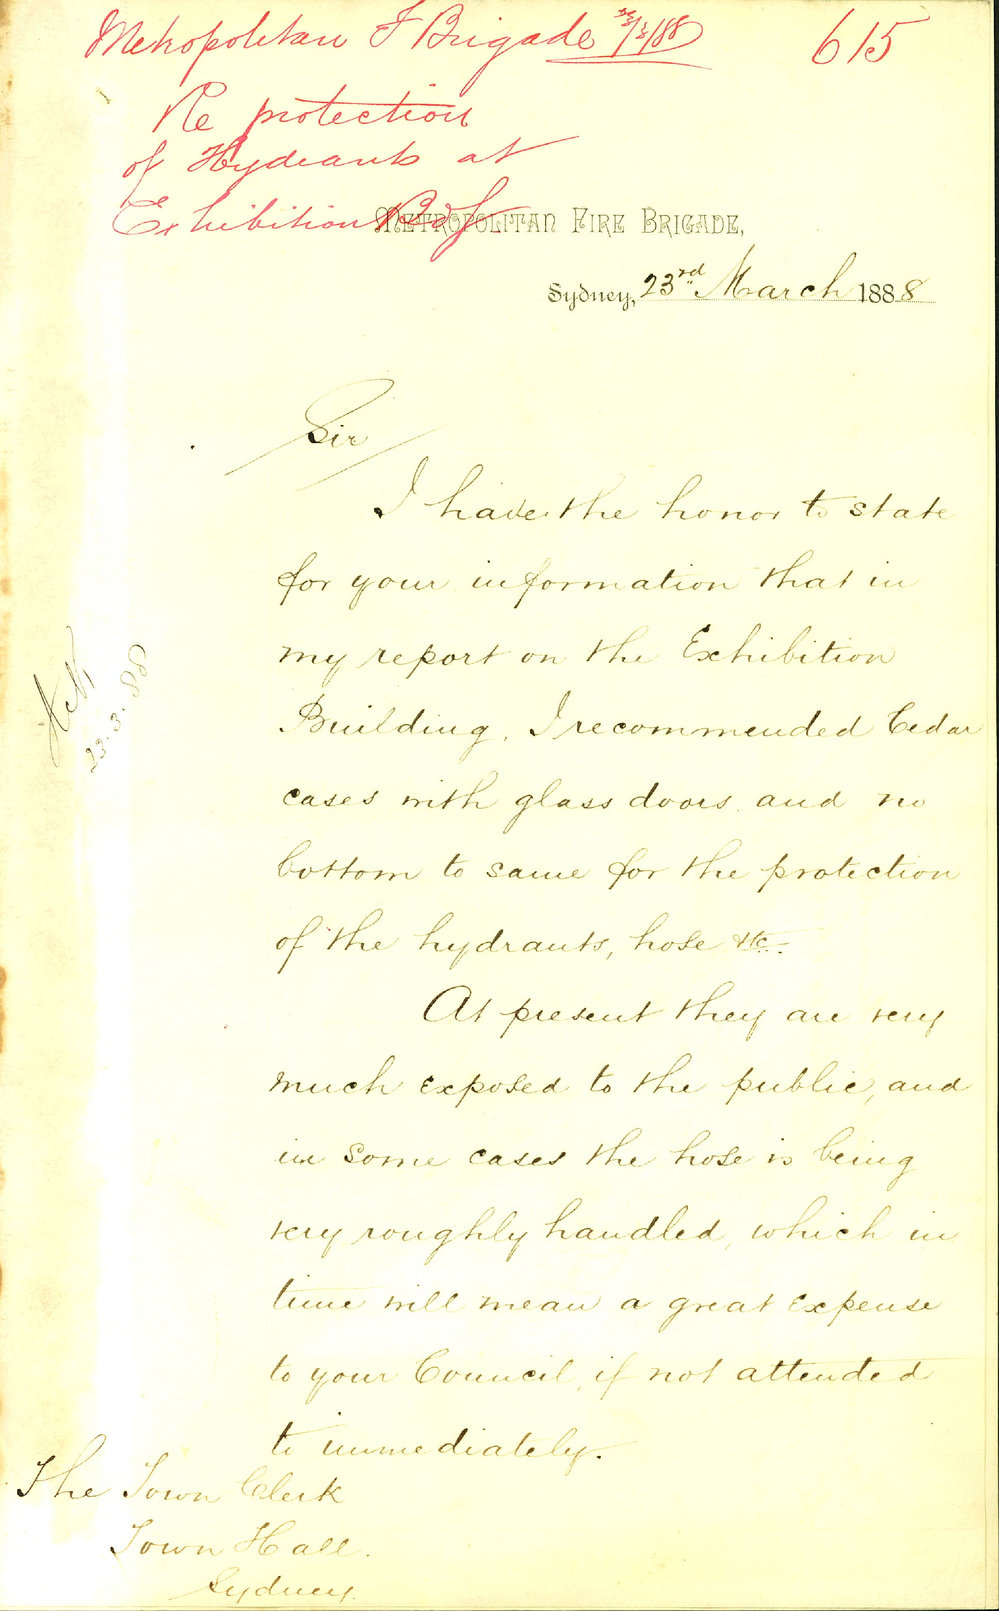 Metropolitan F Brigade 23/3/88
615
Re protection
of Hydrants at
Exhibition Bdg
METROPOLITAN FIRE BRIGADE,
Sydney, 23rd March 1888
Sir
I have the honor to state
for your information that in
my report on the Exhibition
Building, I recommended Cedar
cases with glass doors and no
bottom to same for the protection
of the hydrants, hose &c.
At present they are very
much exposed to the public, and
in some cases the hose is being
very roughly handled, which in
time will mean a great expense
to your Council, if not attended
to immediately.
23.3.88
The Town Clerk
Town Hall.
Sydney.